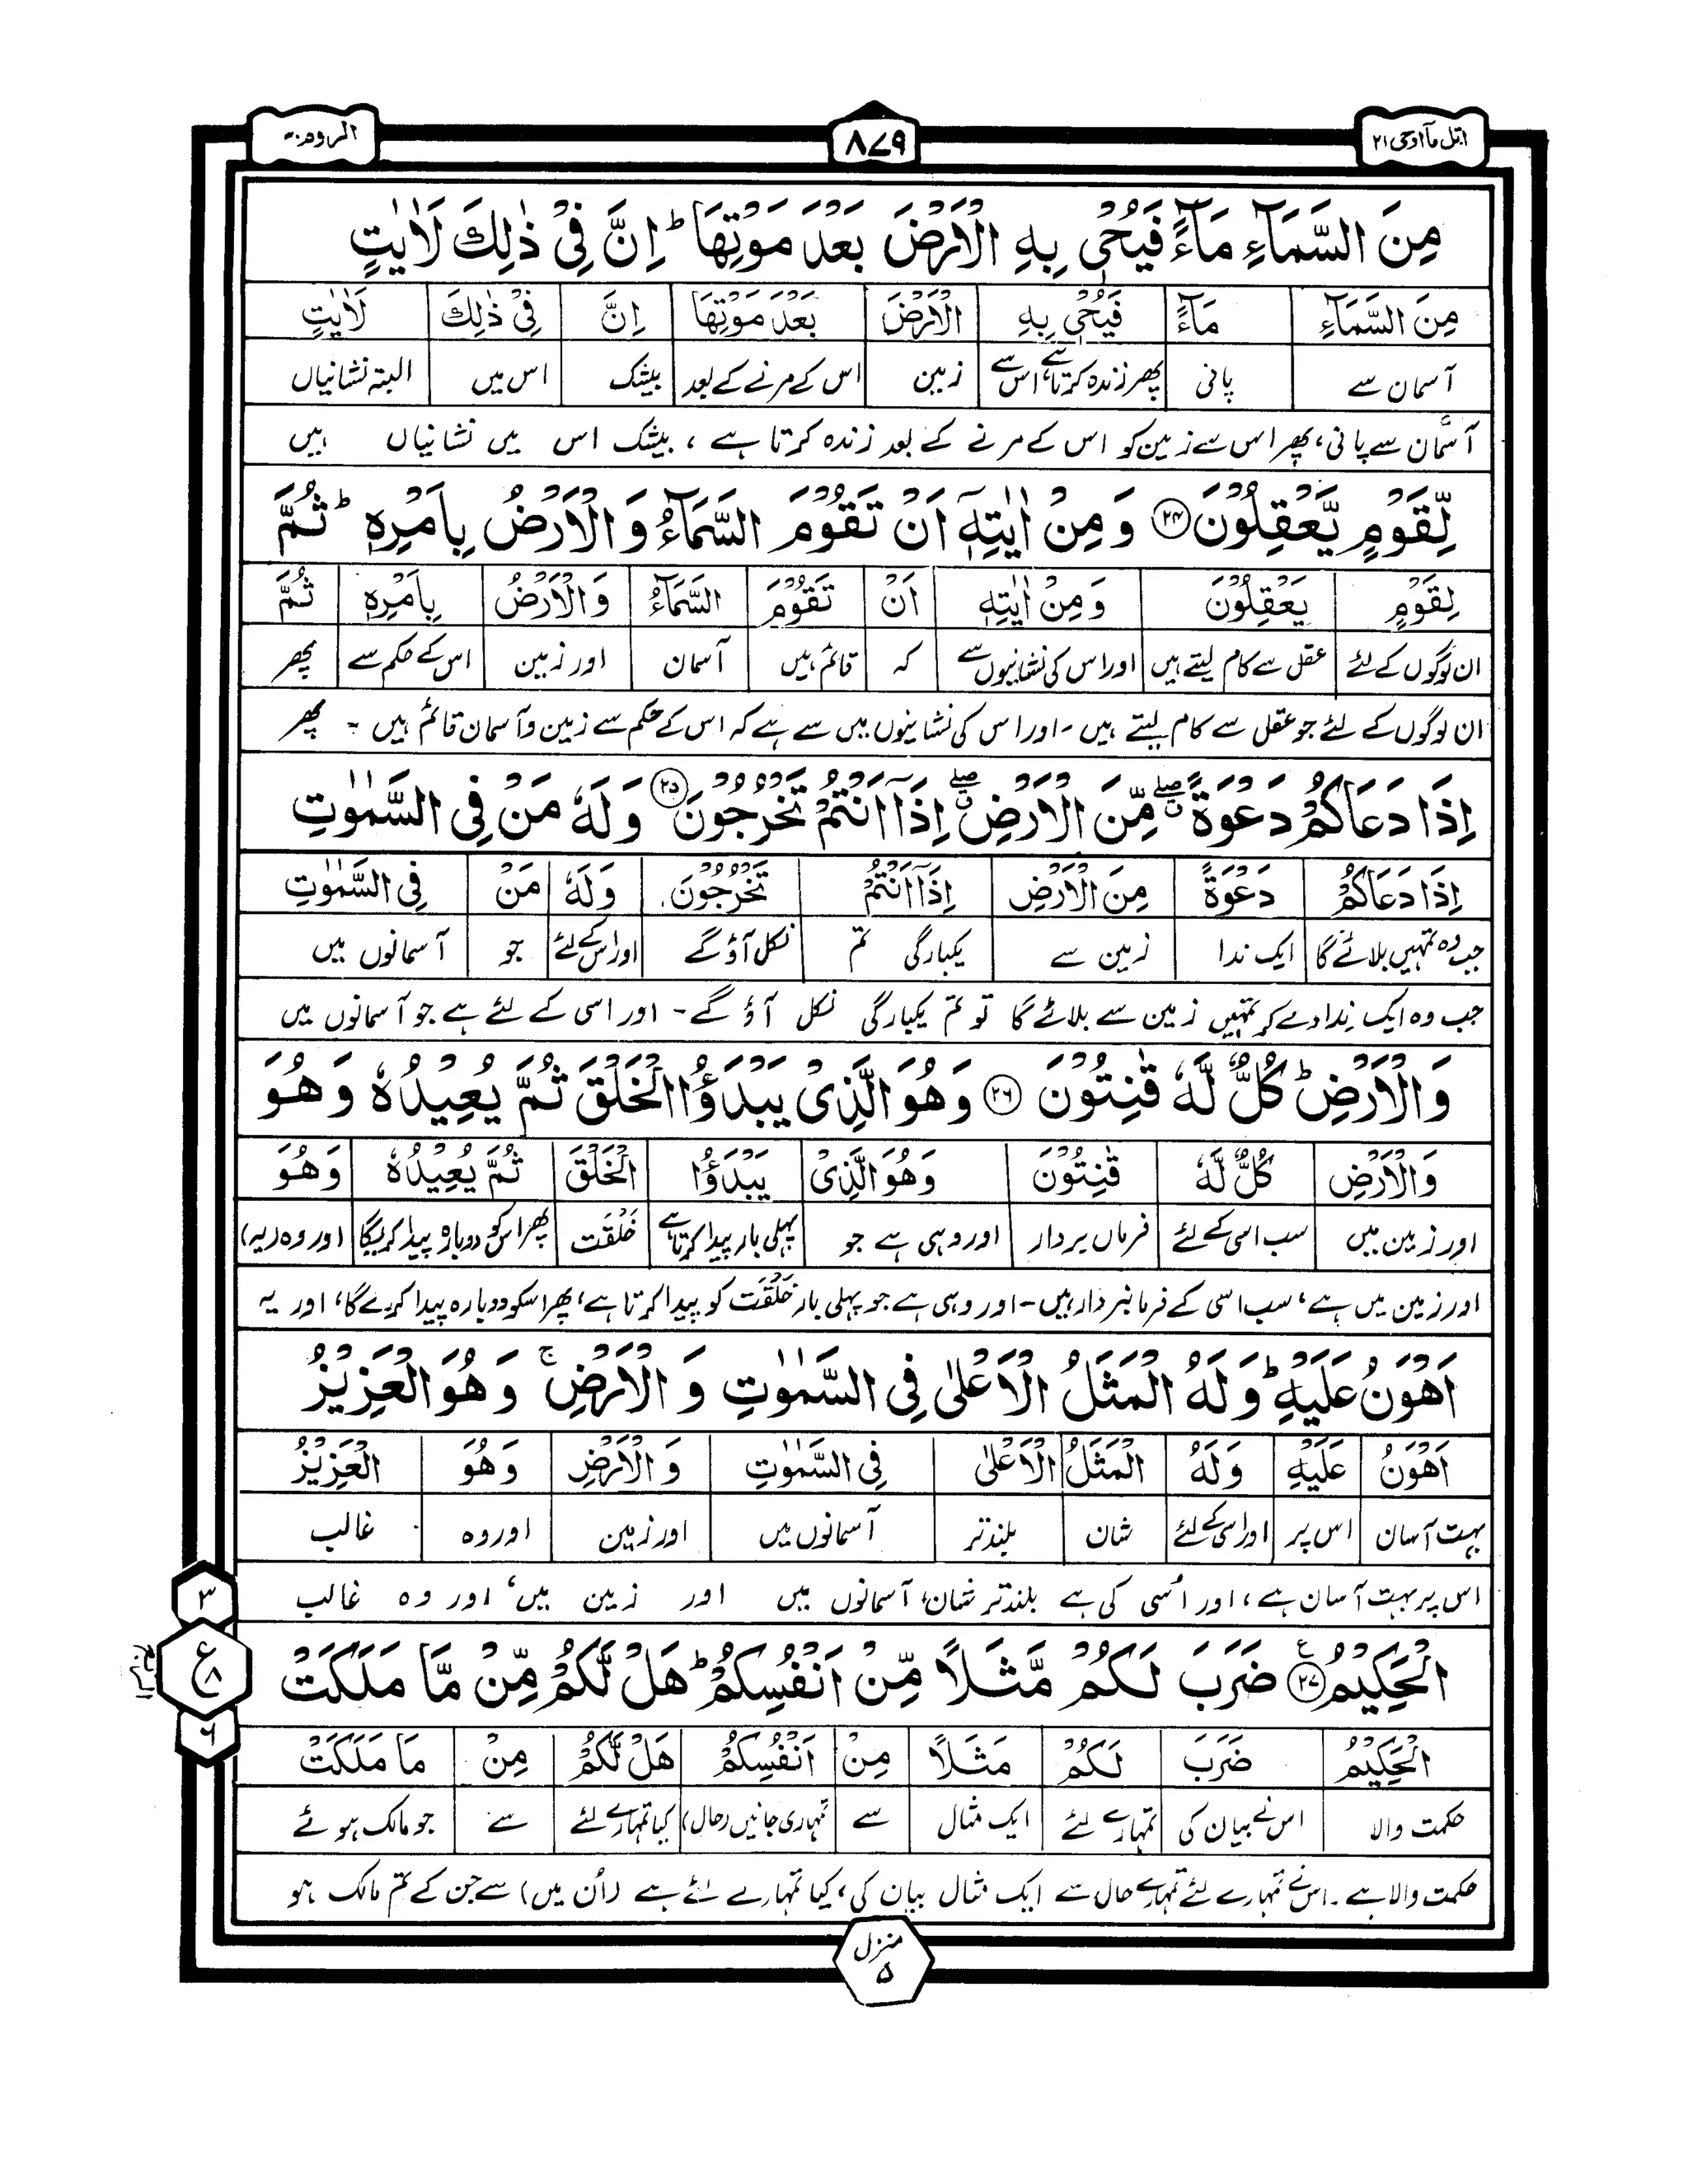 اتل مآ اوحی ۲۱
۸۷۹
الروم ۳۰
مِنَ السَّمَآءِ مَآءً فَيُحْيٖ بِهِ الْاَرْضَ بَعْدَ مَوْتِهَا ؕ اِنَّ فِيْ ذٰلِكَ لَاٰيٰتٍ
مِنَ السَّمَآءِ مَآءً فَيُحْيٖ بِهِ الْاَرْضَ بَعْدَ مَوْتِهَا اِنَّ فِيْ ذٰلِكَ لَاٰيٰتٍ
آسمان سے پانی پھر زندہ کرتا ہے اس سے زمین اس کے مرنے کے بعد بیشک اس میں البتہ نشانیاں
آسمان سے پانی، پھر اس سے زمین کو اس کے مرنے کے بعد زندہ کرتا ہے، بیشک اس میں نشانیاں ہیں
لِّقَوْمٍ يَّعْقِلُوْنَ ۲۴ وَمِنْ اٰيٰتِهٖٓ اَنْ تَقُوْمَ السَّمَآءُ وَالْاَرْضُ بِاَمْرِهٖ ؕ ثُمَّ
لِقَوْمٍ يَعْقِلُوْنَ وَمِنْ اٰيٰتِهٖ اَنْ تَقُوْمَ السَّمَآءُ وَالْاَرْضُ بِاَمْرِهٖ ثُمَّ
ان لوگوں کے لئے عقل سے کام لیتے ہیں اور اس کی نشانیوں سے کہ قائم ہیں آسمان اور زمین اس کے حکم سے پھر
ان لوگوں کے لئے جو عقل سے کام لیتے ہیں - اور اس کی نشانیوں میں سے ہے کہ اس کے حکم سے زمین و آسمان قائم ہیں - پھر
اِذَا دَعَاكُمْ دَعْوَةً ۖ مِّنَ الْاَرْضِ ۖ اِذَآ اَنْتُمْ تَخْرُجُوْنَ ۲۵ وَلَهٗ مَنْ فِي السَّمٰوٰتِ
اِذَا دَعَاكُمْ دَعْوَةً مِنَ الْاَرْضِ اِذَآ اَنْتُمْ تَخْرُجُوْنَ وَلَهٗ مَنْ فِي السَّمٰوٰتِ
جب وہ تمہیں بلائے گا ایک ندا زمین سے یکبارگی تم نکل آؤ گے اور اس کے لئے جو آسمانوں میں
جب وہ ایک ندا دے کر تمہیں زمین سے بلائے گا تو تم یکبارگی نکل آؤ گے - اور اسی کے لئے ہے جو آسمانوں میں
وَالْاَرْضِ ؕ كُلٌّ لَّهٗ قٰنِتُوْنَ ۲۶ وَهُوَ الَّذِيْ يَبْدَؤُا الْخَلْقَ ثُمَّ يُعِيْدُهٗ وَهُوَ
وَالْاَرْضِ كُلٌّ لَّهٗ قٰنِتُوْنَ وَهُوَ الَّذِيْ يَبْدَؤُا الْخَلْقَ ثُمَّ يُعِيْدُهٗ وَهُوَ
اور زمین میں سب اسی کے لئے فرماں بردار اور وہی ہے جو پہلی بار پیدا کرتا ہے خَلْقَت پھر اس کو دوبارہ پیدا کریگا اور وہ (یہ)
اور زمین میں ہے، سب اسی کے فرمانبردار ہیں - اور وہی ہے جو پہلی بار خَلْقَت کو پیدا کرتا ہے، پھر اسکو دوبارہ پیدا کرے گا، اور یہ
اَهْوَنُ عَلَيْهِ ؕ وَلَهُ الْمَثَلُ الْاَعْلٰى فِي السَّمٰوٰتِ وَ الْاَرْضِ ۚ وَهُوَ الْعَزِيْزُ
اَهْوَنُ عَلَيْهِ وَلَهُ الْمَثَلُ الْاَعْلٰى فِي السَّمٰوٰتِ وَالْاَرْضِ وَهُوَ الْعَزِيْزُ
بہت آسان اس پر اور اسی کے لئے شان بلند تر آسمانوں میں اور زمین اور وہ غالب
اس پر بہت آسان ہے، اور اُسی کی ہے بلند تر شان، آسمانوں میں اور زمین میں، اور وہ غالب
الْحَكِيْمُ ۲۷ ع ضَرَبَ لَكُمْ مَّثَلًا مِّنْ اَنْفُسِكُمْ ؕ هَلْ لَّكُمْ مِّنْ مَّا مَلَكَتْ
الْحَكِيْمُ ضَرَبَ لَكُمْ مَثَلًا مِنْ اَنْفُسِكُمْ هَلْ لَّكُمْ مِنْ مَا مَلَكَتْ
حکمت والا اس نے بیان کی تمہارے لئے ایک مثال سے تمہاری جانیں (حال) کیا تمہارے لئے سے جو مالک ہوئے
حکمت والا ہے - اس نے تمہارے لئے تمہارے حال سے ایک مثال بیان کی، کیا تمہارے لئے ہے (اُن میں) سے جن کے تم مالک ہو
۳
ع
۸
۶
منزل
۵